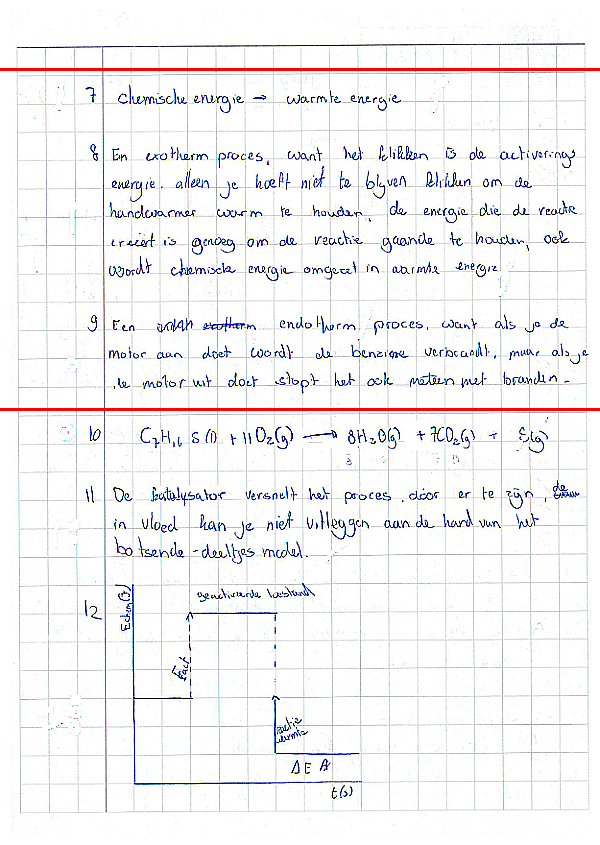 7 chemische energie → warmte energie
8 En exotherm proces, want het klikken is de activerings
energie. alleen je hoeft niet te blyven klikken om de
handwarmer warm te houden, de energie die de reactie
creëert is genoeg om de reactie gaande te houden, ook
wordt chemische energie omgezet in warmte energie
9 Een endotherm proces, want als je de
motor aan doet wordt de benzine verbrandt, maar als je
de motor uit doet stopt het ook meteen met branden.
10 C₇H₁₆ S (l) + 11O₂(g) → 8H₂O(g) + 7CO₂(g) + S(g)
11 De katalysator versnelt het proces door er te zijn, de
in vloed kan je niet uitleggen aan de hand van het
botsende-deeltjes model.
12 Echem(J)
geactiveerde toestand
Eact
reactie
warmte
ΔE
t(s)